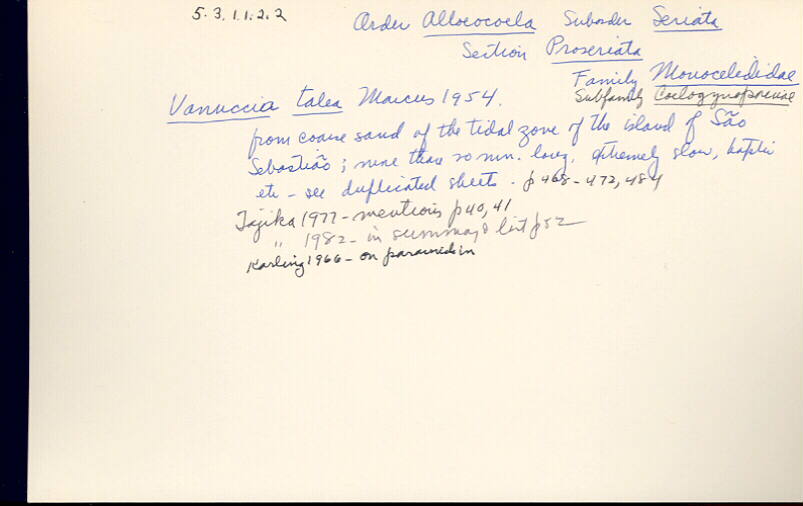 5.3.1.1.2.2
Order Alloeocoela Suborder Seriata
Section Proseriata
Family Monocelididae
Subfamily Coelogynoporinae
Vanuccia talea Marcus 1954.
from coarse sand of the tidal zone of the island of São
Sebastião; more than 10 mm. long, extremely slow, haptic
etc - see duplicated sheets. p 468-472, 484
Tajika 1977 - mentions p 40, 41
" 1982 - in summary & list p 52
Karling 1966 - on